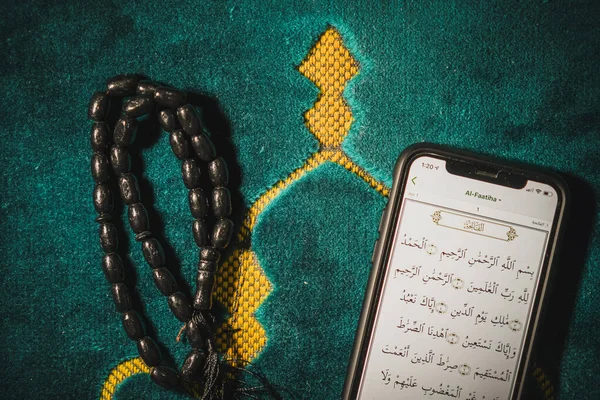 1:20
Al-Faatiha
1
الفاتحة
بِسْمِ اللَّهِ الرَّحْمَٰنِ الرَّحِيمِ ١ الْحَمْدُ
لِلَّهِ رَبِّ الْعَٰلَمِينَ ٢ الرَّحْمَٰنِ الرَّحِيمِ
٣ مَٰلِكِ يَوْمِ الدِّينِ ٤ إِيَّاكَ نَعْبُدُ
وَإِيَّاكَ نَسْتَعِينُ ٥ اهْدِنَا الصِّرَٰطَ
الْمُسْتَقِيمَ ٦ صِرَٰطَ الَّذِينَ أَنْعَمْتَ
عَلَيْهِمْ غَيْرِ الْمَغْضُوبِ عَلَيْهِمْ وَلَا